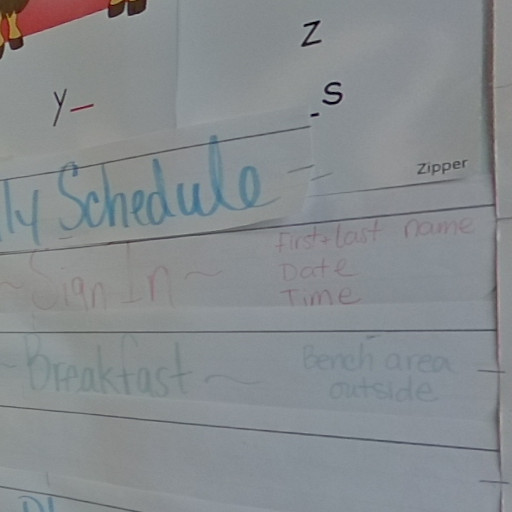 Z
y
s
Zipper
ly Schedule
~ Sign In ~
First + last name
Date
Time
~ Breakfast ~
Bench area
outside